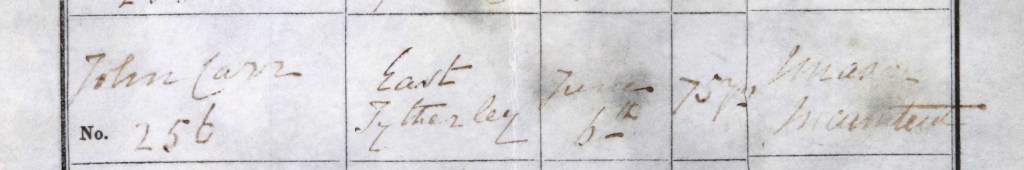 John Carr East June 75 yrs
No. 256 Tytherley 6th